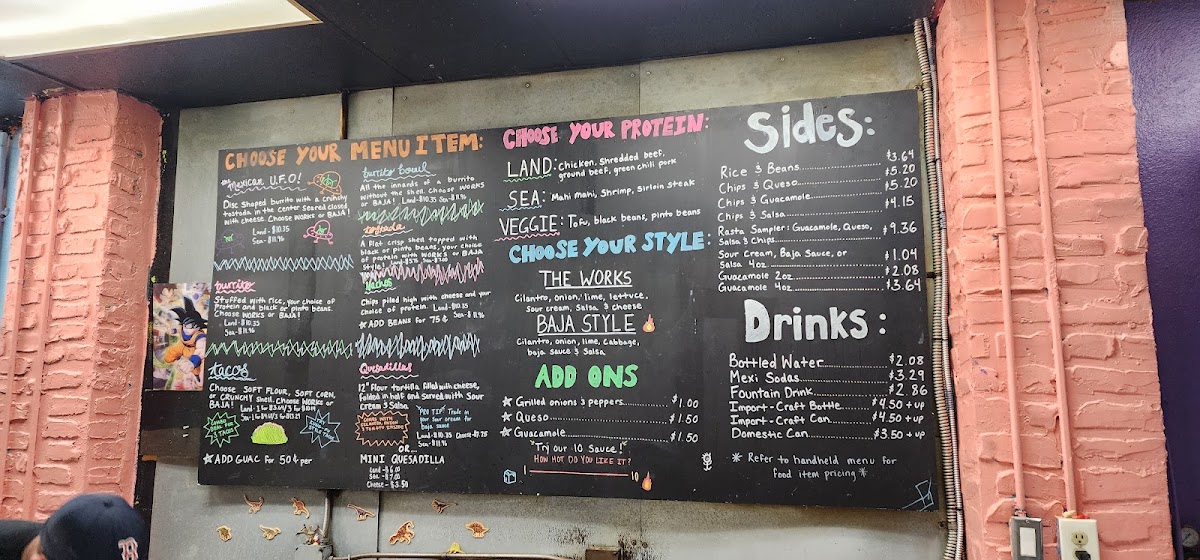 CHOOSE YOUR MENU ITEM:
Mexican U.F.O!
Disc Shaped burrito with a crunchy
tostada in the center seared closed
with cheese. Choose works or BAJA!
Land-$10.35
Sea-$11.96
burrito
Stuffed with rice, your choice of
Protein and black or pinto beans.
Choose WORKS or BAJA!
Land-$10.35
Sea-$11.96
tacos
Choose SOFT FLOUR, SOFT CORN,
OR CRUNCHY Shell. Choose WORKS or
BAJA!
★ ADD GUAC for 50¢ per
burrito Bowl
All the innards of a burrito
without the shell. Choose WORKS
or BAJA! Land-$10.35 Sea-$11.96
tostada
A flat crisp shell topped with
black or pinto beans, your choice
of protein with WORKS or BAJA
Style!
Nachos
Chips piled high with cheese and your
choice of protein. Land-$10.35
★ ADD BEANS for 75¢ Sea-$11.96
Quesadillas
12" Flour tortilla filled with cheese,
folded in half and served with Sour
cream & Salsa
"PRO TIP" Trade in
your sour cream for
baja sauce
Land-$10.35 Cheese-$7.75
Sea-$11.96
OR...
MINI QUESADILLA
Land-$6.00
Sea-$7.05
Cheese-$3.50
CHOOSE YOUR PROTEIN:
LAND: Chicken, Shredded beef,
ground beef, green chili pork
SEA: Mahi Mahi, Shrimp, Sirloin Steak
VEGGIE: Tofu, black beans, pinto beans
CHOOSE YOUR STYLE:
THE WORKS
Cilantro, onion, lime, lettuce,
sour cream, Salsa & cheese
BAJA STYLE
Cilantro, onion, lime, Cabbage,
baja sauce & Salsa
ADD ONS
★ Grilled onions & peppers $1.00
★ Queso $1.50
★ Guacamole $1.50
"Try our 10 Sauce!"
HOW HOT DO YOU LIKE IT?
1 10
Sides:
Rice & Beans $3.64
Chips & Queso $5.20
Chips & Guacamole $5.20
Chips & Salsa $4.15
Rasta Sampler: Guacamole, Queso,
Salsa & Chips $9.36
Sour Cream, Baja Sauce, or
Salsa 4oz $1.04
Guacamole 2oz $2.08
Guacamole 4oz $3.64
Drinks:
Bottled Water $2.08
Mexi Sodas $3.29
Fountain Drink $2.86
Import-Craft Bottle $4.50+up
Import-Craft Can $4.50+up
Domestic Can $3.50+up
* Refer to handheld menu for
food item pricing *
B